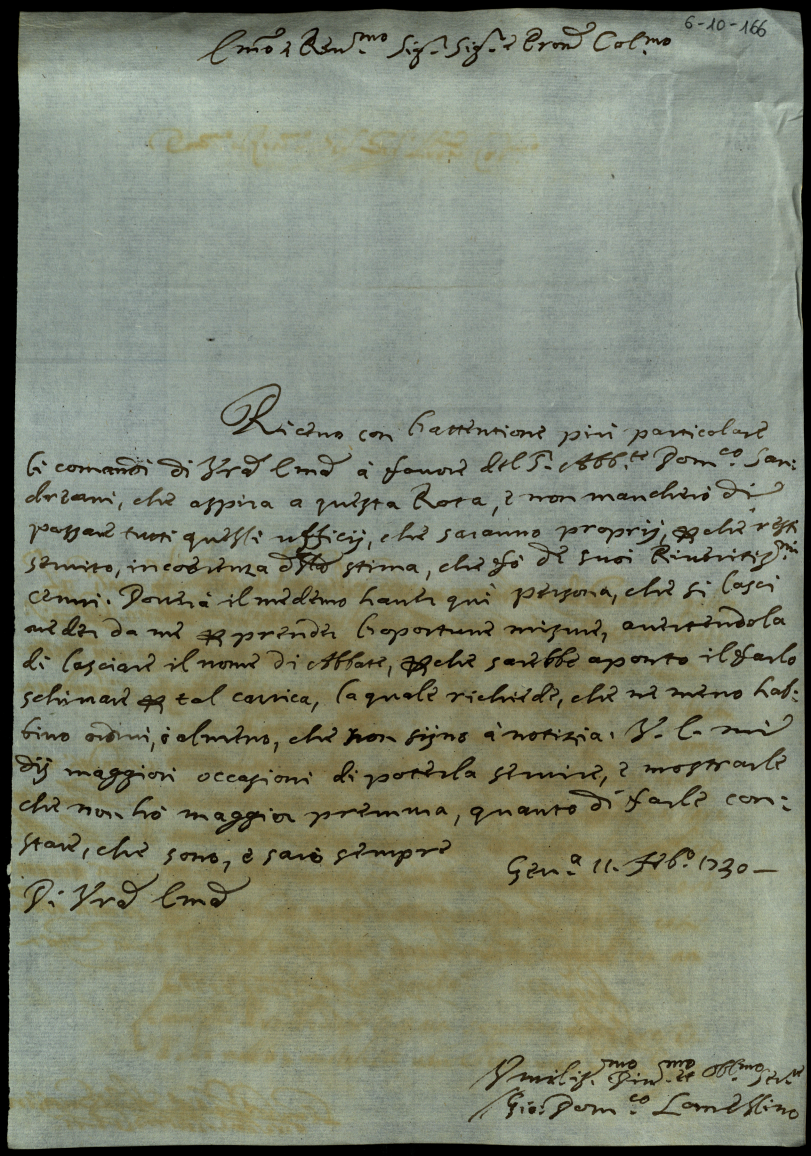 6-10-166
Emo e Renmo Sigr Sigre Prone Colmo
Riceuo con l'attentione più particolare
li comandi di Vra Ema à fauore del Sr Abbte Domco San:
drezani, che aspira a questa Rota, e non mancherò di
passare tutti quelli ufficij, che saranno proprij, perche resti
seruito, in coerenza della stima, che fò de suoi Riueritissmi
cenni. Douerà il medemo hauer quì persona, che si lasci
ueder da me per prender l'oportune misure, auertendola
di lasciare il nome di Abbate, perche sarebbe aponto il farlo
schiuare per tal carrica, la quale richiede, che ne meno hab:
bino ordini, ò almeno, che non sijno à notizia. V. E. mi
dij maggiori occasioni di poterla seruire, e mostrarle
che non hò maggior premura, quanto di farle con:
stare, che sono, e sarò sempre
Di Vra Ema
Gena 11. Febo 1730
Umilismo Diumo et Obbmo Serre
Gio: Domco Lomellino